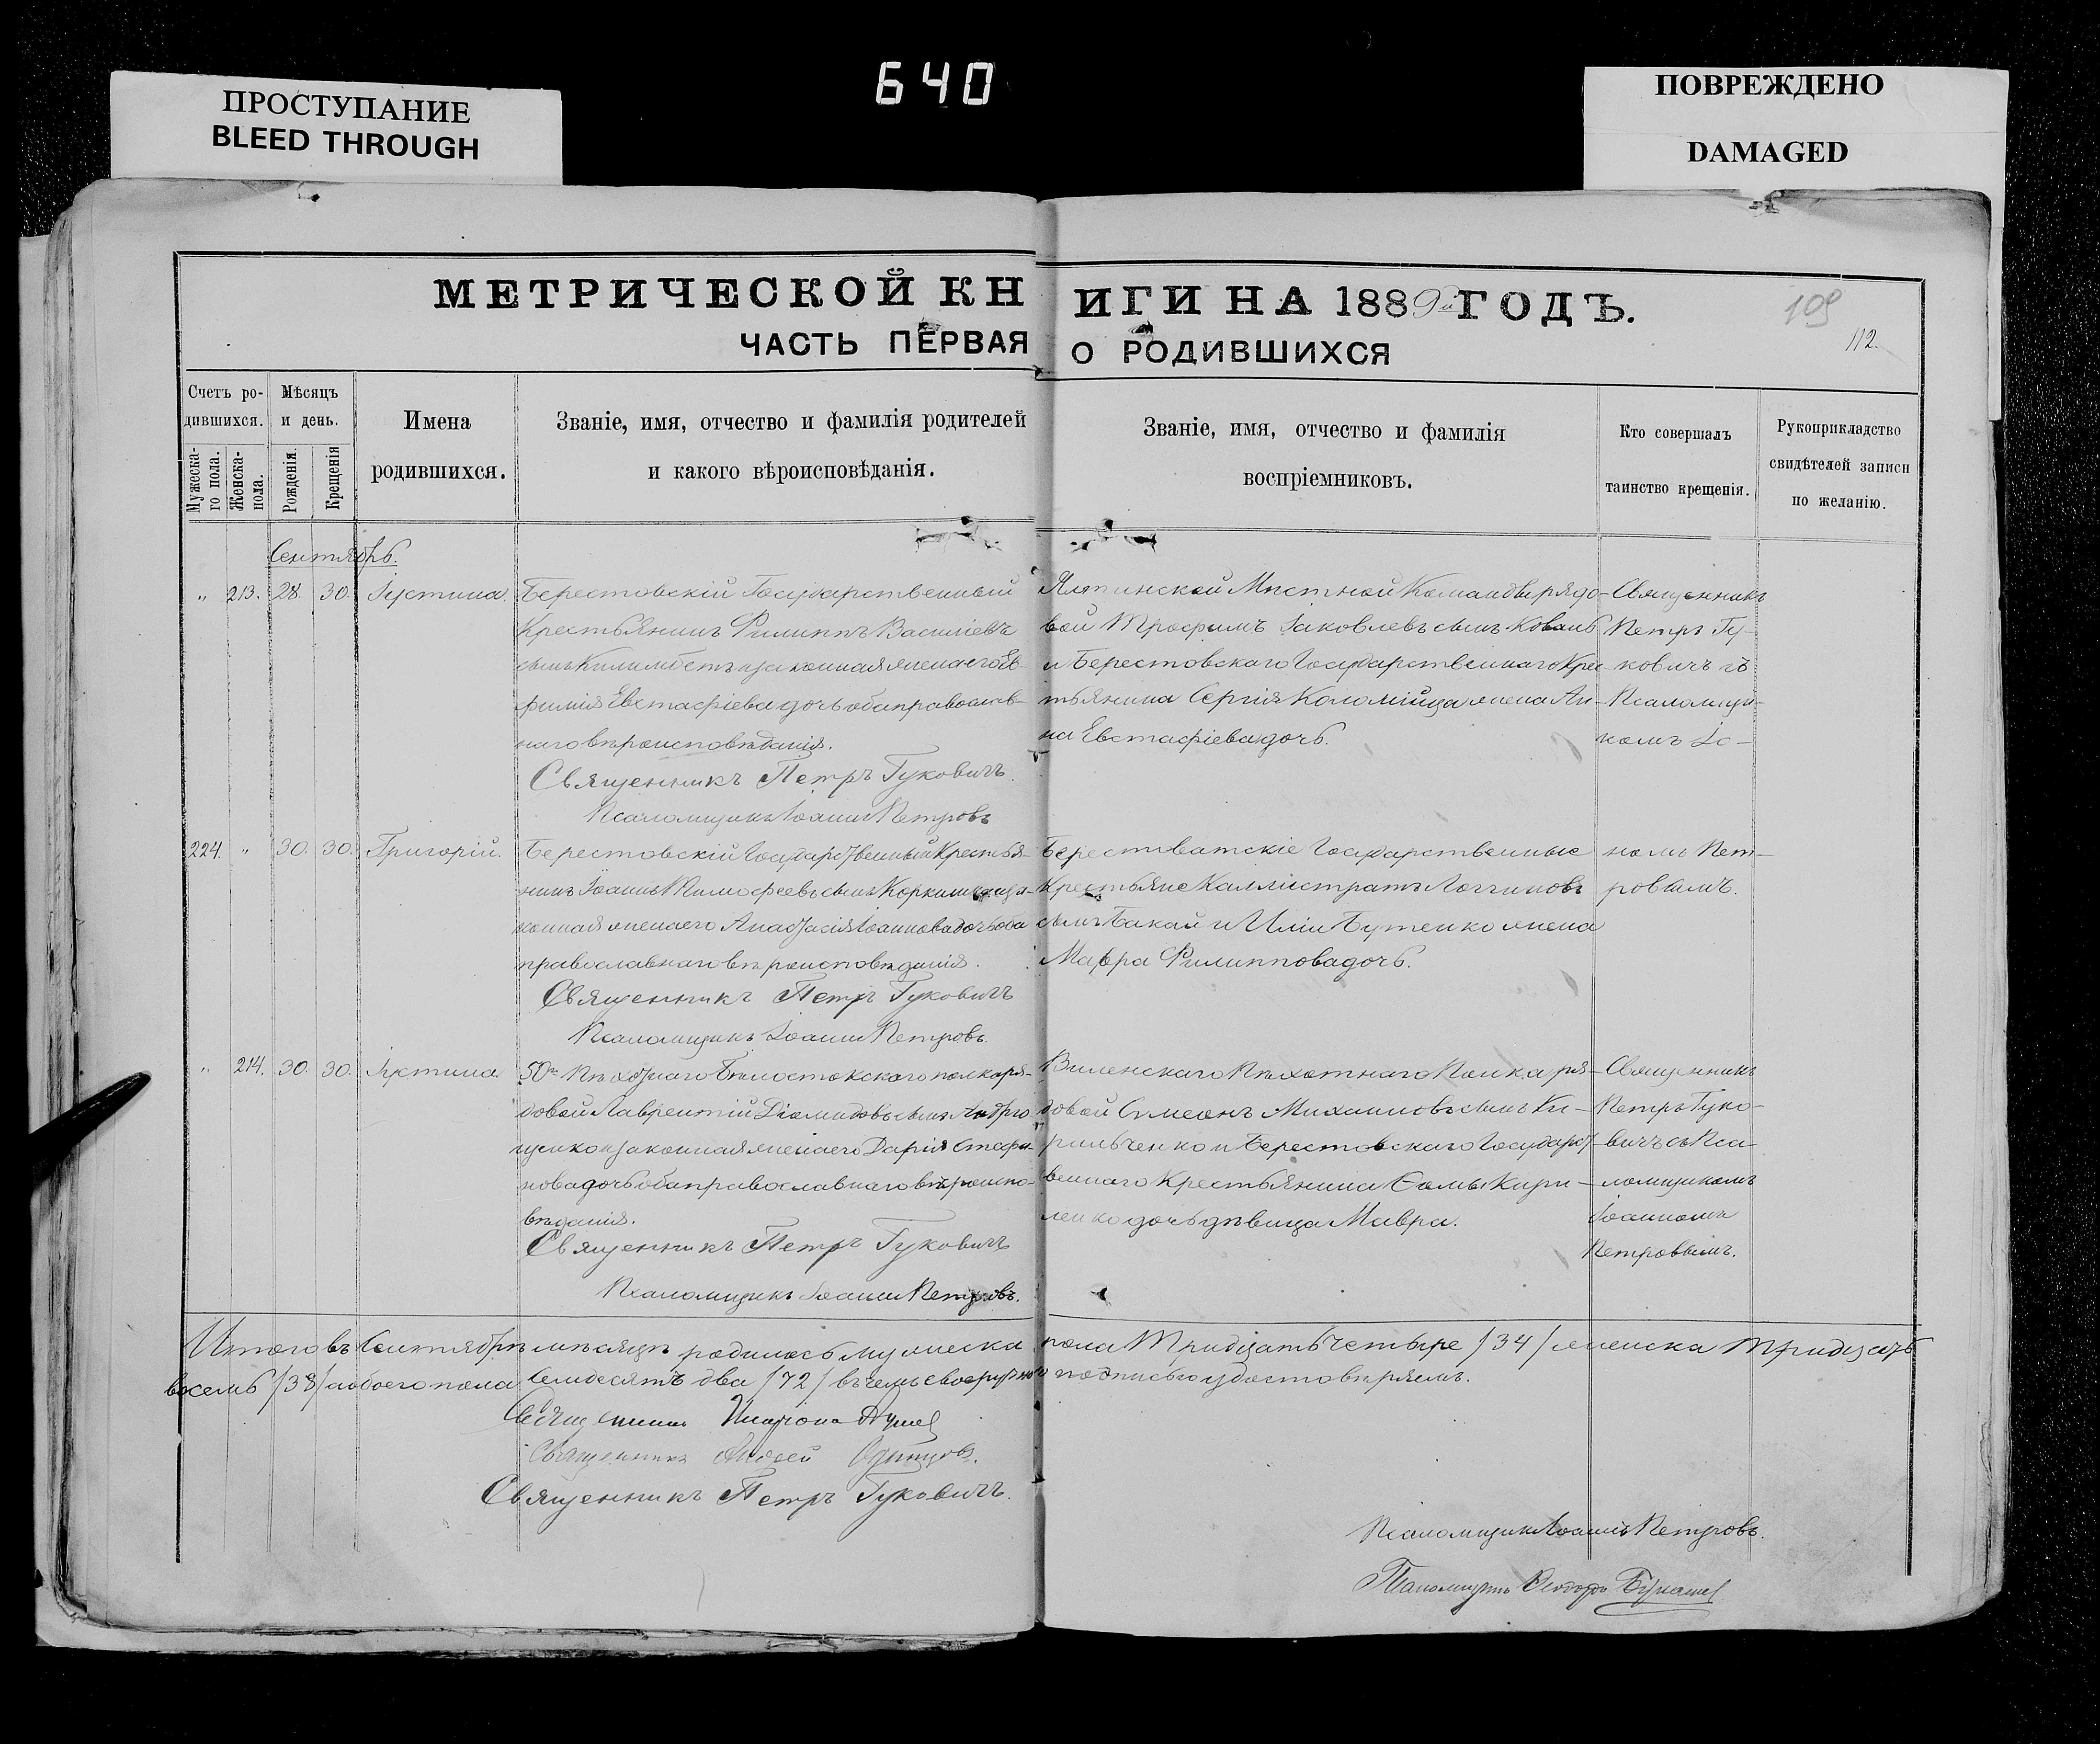 640
ПРОСТУПАНИЕ
BLEED THROUGH
ПОВРЕЖДЕНО
DAMAGED
МЕТРИЧЕСКОЙ КНИГИ НА 1889й ГОДЪ.
ЧАСТЬ ПЕРВАЯ О РОДИВШИХСЯ
109
112.
Счетъ ро-
дившихся.
Мужеска-
го пола.
Женска-
пола.
Мѣсяцъ
и день.
Рожденія.
Крещенія
Имена
родившихся.
Званіе, имя, отчество и фамилія родителей
и какого вѣроисповѣданія.
Званіе, имя, отчество и фамилія
воспріемниковъ.
Кто совершалъ
таинство крещенія.
Рукоприкладство
свидѣтелей записи
по желанію.
Сентябрь.
„ 213. 28. 30. Іустина.
Берестовскій Государственный
Крестьянинъ Филиппъ Василіевъ
сынъ и законная жена его Ев-
фимія Евстафіева дочь оба православ-
наго вѣроисповѣданія.
Священникъ Петръ Гуковичъ.
Псаломщикъ Іоаннъ Петровъ
Ялтинской Мѣстной Команды рядо-
вой Трофимъ Іаковлевъ сынъ Коваль
и Берестовскаго Государственнаго Крес
тьянина Сергія Коломійца жена Ан-
на Евстафіева дочь.
Священникъ
Петръ Гу-
ковичъ съ
Псаломщи-
комъ Іо-
224. „ 30. 30. Григорій.
Берестовскій Государственный Крестья-
нинъ Іоаннъ Тимофеевъ сынъ и за-
конная жена его Анастасія Іоаннова дочь оба
православнаго вѣроисповѣданія.
Священникъ Петръ Гуковичъ
Псаломщикъ Іоаннъ Петровъ.
Государственные
Крестьяне Каллистратъ Логгиновъ
сынъ Бакай и Иліи Бутенко жена
Мавра Филиппова дочь.
номъ Пет-
ровымъ.
„ 214. 30. 30. Іустина.
50го Пѣхотнаго Бѣлостокскаго полка ря-
довой Лаврентій Діомидовъ сынъ Андрю
щенко и законная жена его Дарія Стефа-
нова дочь оба православнаго вѣроиспо-
вѣданія.
Священникъ Петръ Гуковичъ
Псаломщикъ Іоаннъ Петровъ.
Виленскаго Пѣхотнаго Полка ря-
довой Симеонъ Михаиловъ сынъ Ки-
рильченко и Берестовскаго Государст
веннаго Крестьянина Ѳомы Кири-
ленко дочь дѣвица Мавра.
Священникъ
Петръ Гуко-
вичъ съ Пса-
ломщикомъ
Іоанномъ
Петровымъ.
Итого въ Сентябрѣ мѣсяцѣ родилось мужеска пола Тридцать четыре /34/ женска Тридцать
восемь /38/ а обоего пола Семьдесят два /72/ въ чемъ своеручною подписью удостовѣряемъ.
Священникъ
Священникъ Андрей
Священникъ Петръ Гуковичъ.
Псаломщикъ Іоаннъ Петровъ.
Псаломщикъ Ѳеодоръ